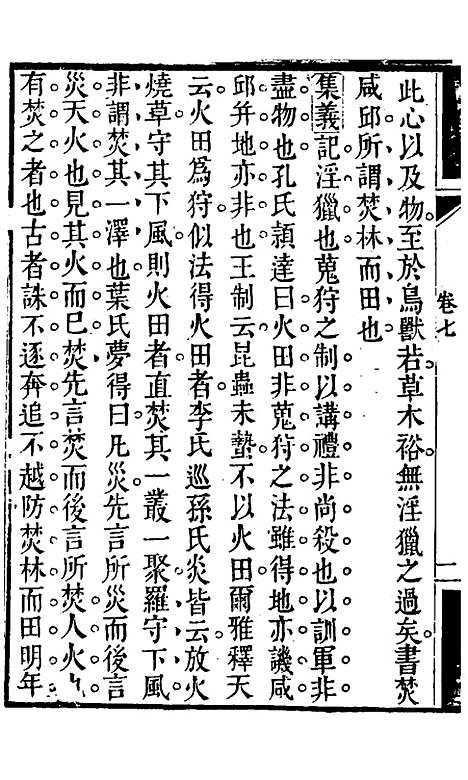 卷七
二
此心以及物。至於鳥獸若草木裕。無淫獵之過矣。書焚
咸邱所謂焚林而田也
集義記淫獵也蒐狩之制。以講禮。非尚殺也。以訓軍。非
盡物也。孔氏頴達曰火田非蒐狩之法。雖得地亦譏。咸
邱并地亦非也。王制云。昆蟲未蟄。不以火田。爾雅釋天
云火田爲狩。似法得火田者。李氏巡孫氏炎皆云放火
燒草守其下風。則火田者直焚其一叢一聚。羅守下風。
非謂焚其一澤也。葉氏夢得曰。凡災先言所災而後言
災。天火也。見其火而已。焚先言焚而後言所焚。人火也。
有焚之者也。古者誅不逐奔。追不越防。焚林而田。明年